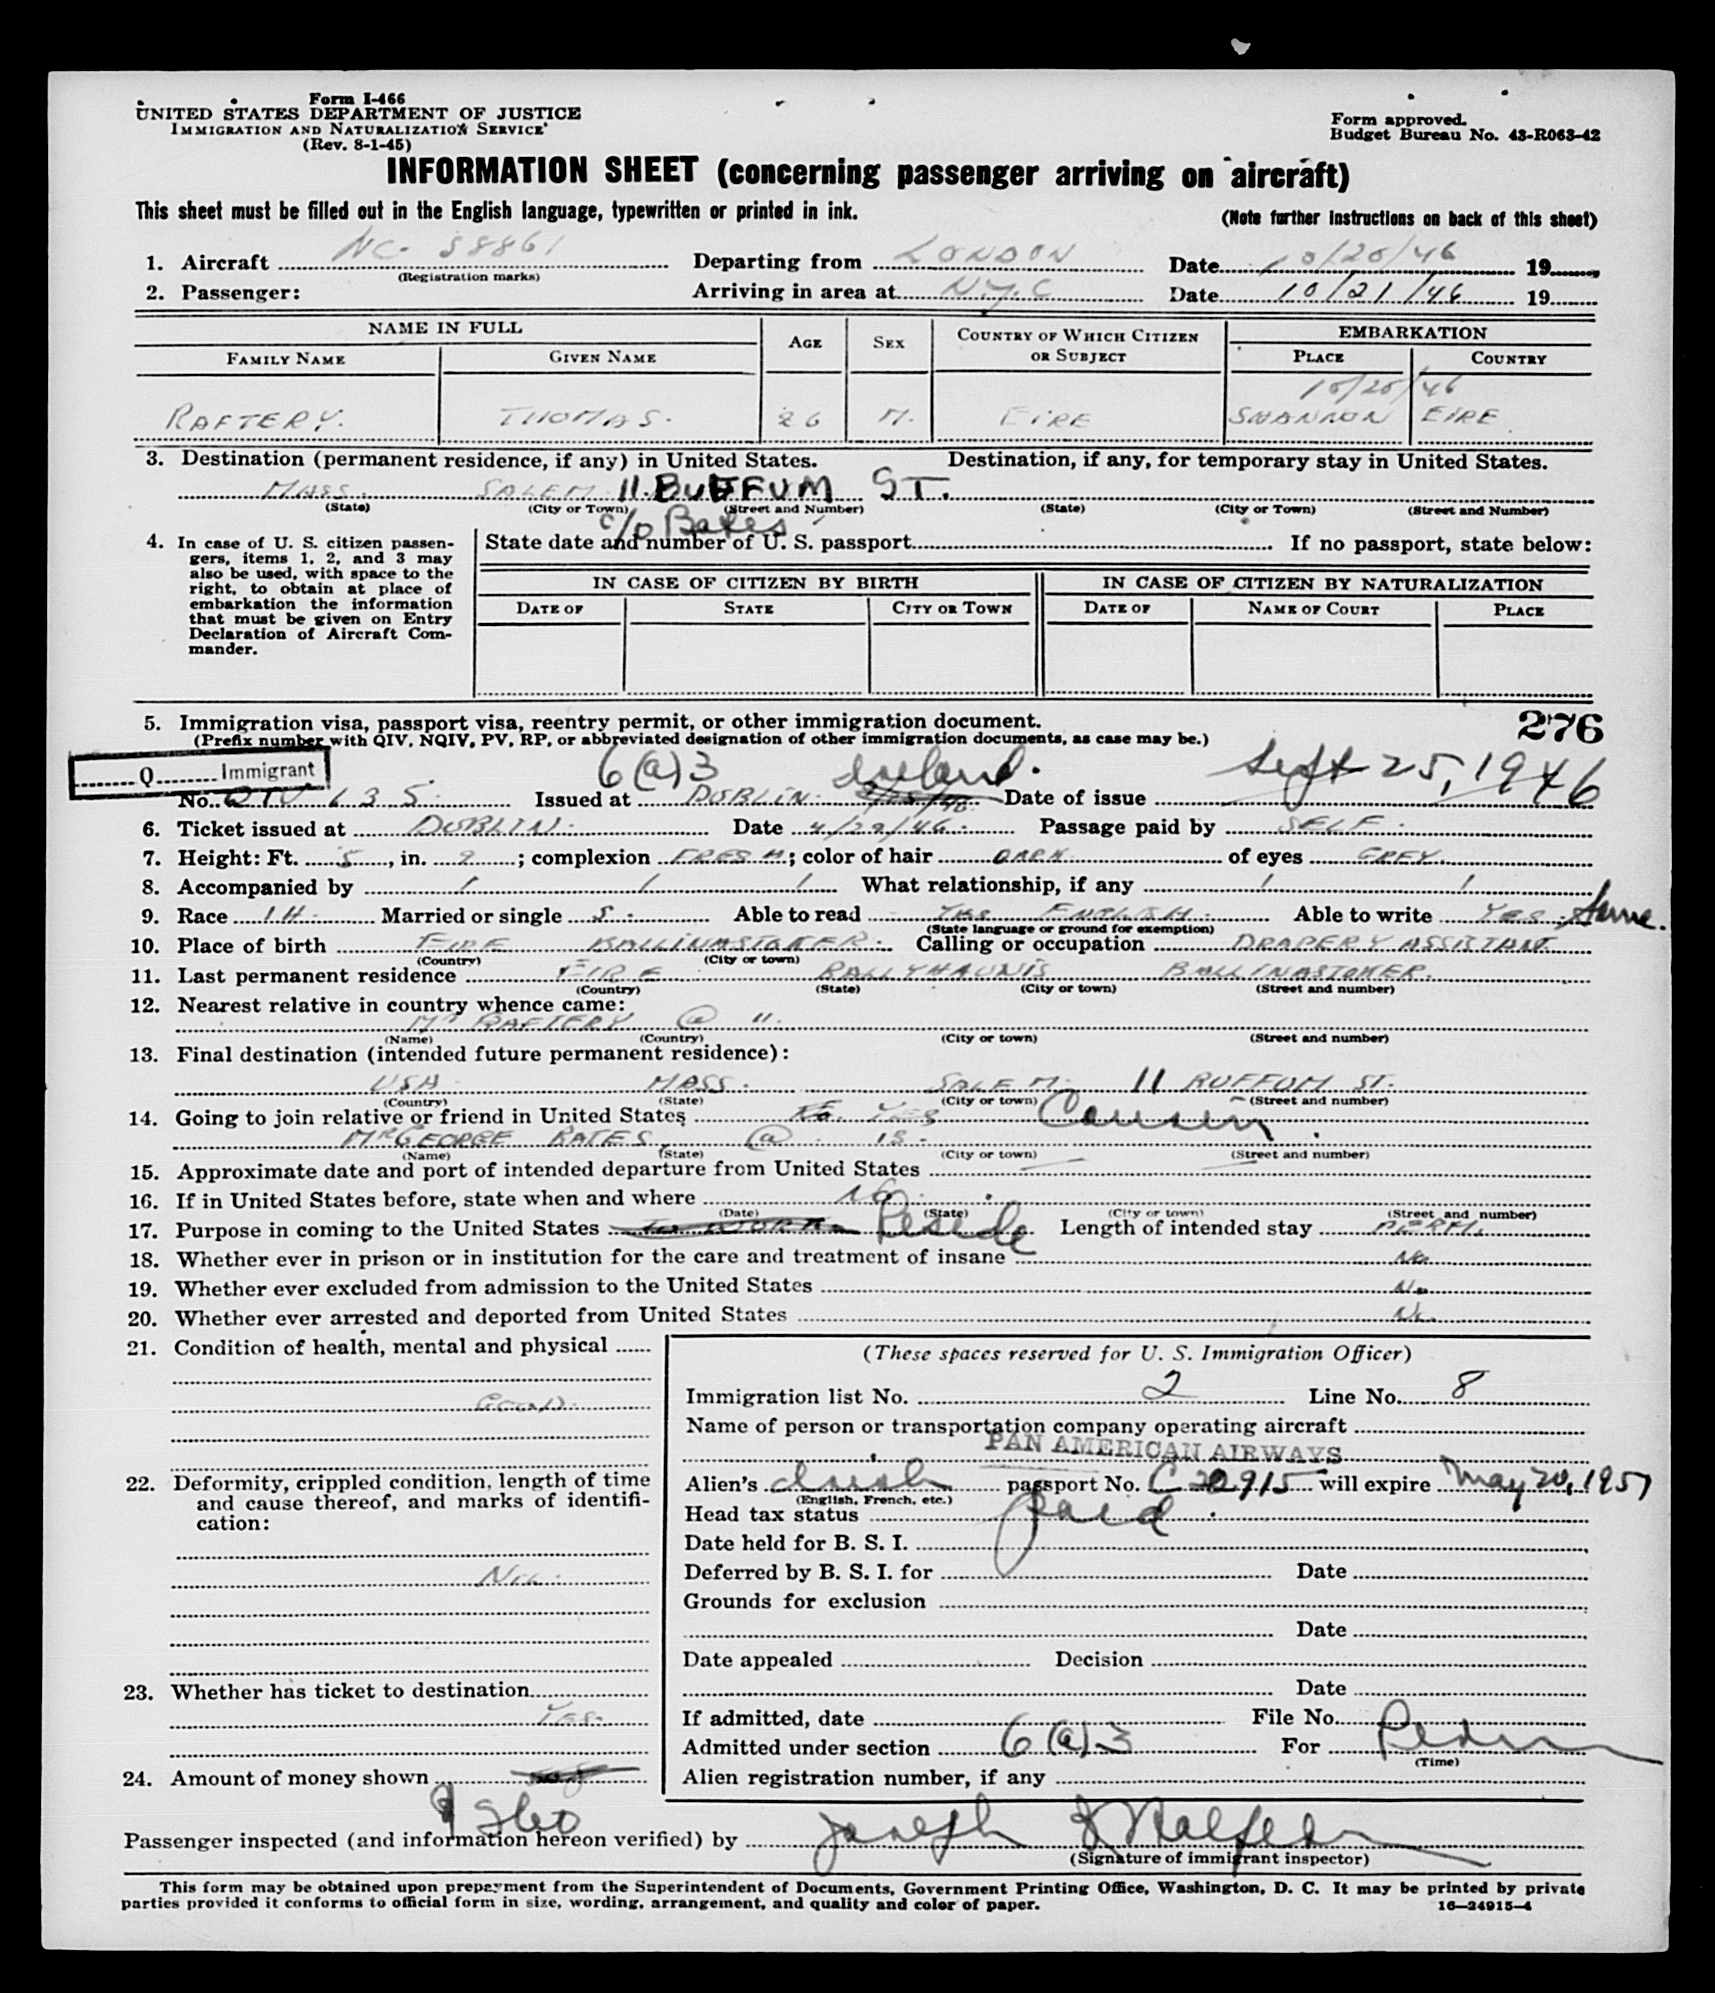 Form I-466
UNITED STATES DEPARTMENT OF JUSTICE
IMMIGRATION AND NATURALIZATION SERVICE
(Rev. 8-1-45)
Form approved.
Budget Bureau No. 43-R063-42
INFORMATION SHEET (concerning passenger arriving on aircraft)
This sheet must be filled out in the English language, typewritten or printed in ink.
(Note further instructions on back of this sheet)
1. Aircraft NC- 88861 Departing from LONDON Date 10/20/46 19
(Registration marks)
2. Passenger: Arriving in area at N.Y.C Date 10/21/46 19
NAME IN FULL AGE SEX COUNTRY OF WHICH CITIZEN OR SUBJECT EMBARKATION
FAMILY NAME GIVEN NAME PLACE COUNTRY
10/20/46
RAFTERY. THOMAS. 26 M. EIRE SHANNON EIRE
3. Destination (permanent residence, if any) in United States. Destination, if any, for temporary stay in United States.
MASS. SALEM 11 BUFFUM ST.
(State) (City or Town) (Street and Number) (State) (City or Town) (Street and Number)
c/o Bates
4. In case of U. S. citizen passengers, items 1, 2, and 3 may also be used, with space to the right, to obtain at place of embarkation the information that must be given on Entry Declaration of Aircraft Commander.
State date and number of U. S. passport If no passport, state below:
IN CASE OF CITIZEN BY BIRTH IN CASE OF CITIZEN BY NATURALIZATION
DATE OF STATE CITY OR TOWN DATE OF NAME OF COURT PLACE
5. Immigration visa, passport visa, reentry permit, or other immigration document. 276
(Prefix number with QIV, NQIV, PV, RP, or abbreviated designation of other immigration documents, as case may be.)
Q Immigrant 6(a)3 Ireland. Sept 25, 1946
No. QIV 635. Issued at DUBLIN. Date of issue
6. Ticket issued at DUBLIN. Date 4/29/46. Passage paid by SELF.
7. Height: Ft. 5, in. 9; complexion FRESH; color of hair DARK of eyes GREY
8. Accompanied by / / / What relationship, if any / /
9. Race IH. Married or single S. Able to read YES ENGLISH. Able to write YES. Same.
(State language or ground for exemption)
10. Place of birth EIRE BALLINASTOKER. Calling or occupation DRAPERY ASSISTANT.
(Country) (City or town)
11. Last permanent residence EIRE BALLYHAUNIS BALLINASTOKER.
(Country) (State) (City or town) (Street and number)
12. Nearest relative in country whence came:
Mr RAFTERY @ 11.
(Name) (Country) (City or town) (Street and number)
13. Final destination (intended future permanent residence):
USA. MASS. SALEM. 11 BUFFUM ST.
(Country) (State) (City or town) (Street and number)
14. Going to join relative or friend in United States YES Cousin.
Mr GEORGE BATES. @ 13.
(Name) (State) (City or town) (Street and number)
15. Approximate date and port of intended departure from United States
16. If in United States before, state when and where NO.
(Date) (State) (City or town) (Street and number)
17. Purpose in coming to the United States Reside Length of intended stay PERM.
18. Whether ever in prison or in institution for the care and treatment of insane No
19. Whether ever excluded from admission to the United States No
20. Whether ever arrested and deported from United States No.
21. Condition of health, mental and physical
GOOD.
22. Deformity, crippled condition, length of time and cause thereof, and marks of identification:
NIL.
23. Whether has ticket to destination
YES.
24. Amount of money shown
$260
(These spaces reserved for U. S. Immigration Officer)
Immigration list No. 2 Line No. 8
Name of person or transportation company operating aircraft
PAN AMERICAN AIRWAYS
Alien's Irish passport No. C 20915 will expire May 20, 1951
(English, French, etc.)
Head tax status paid.
Date held for B. S. I.
Deferred by B. S. I. for Date
Grounds for exclusion
Date
Date appealed Decision
Date
If admitted, date File No.
Admitted under section 6(a)3 For Perm
(Time)
Alien registration number, if any
Passenger inspected (and information hereon verified) by Joseph
(Signature of immigrant inspector)
This form may be obtained upon prepayment from the Superintendent of Documents, Government Printing Office, Washington, D. C. It may be printed by private
parties provided it conforms to official form in size, wording, arrangement, and quality and color of paper. 16—24915-4